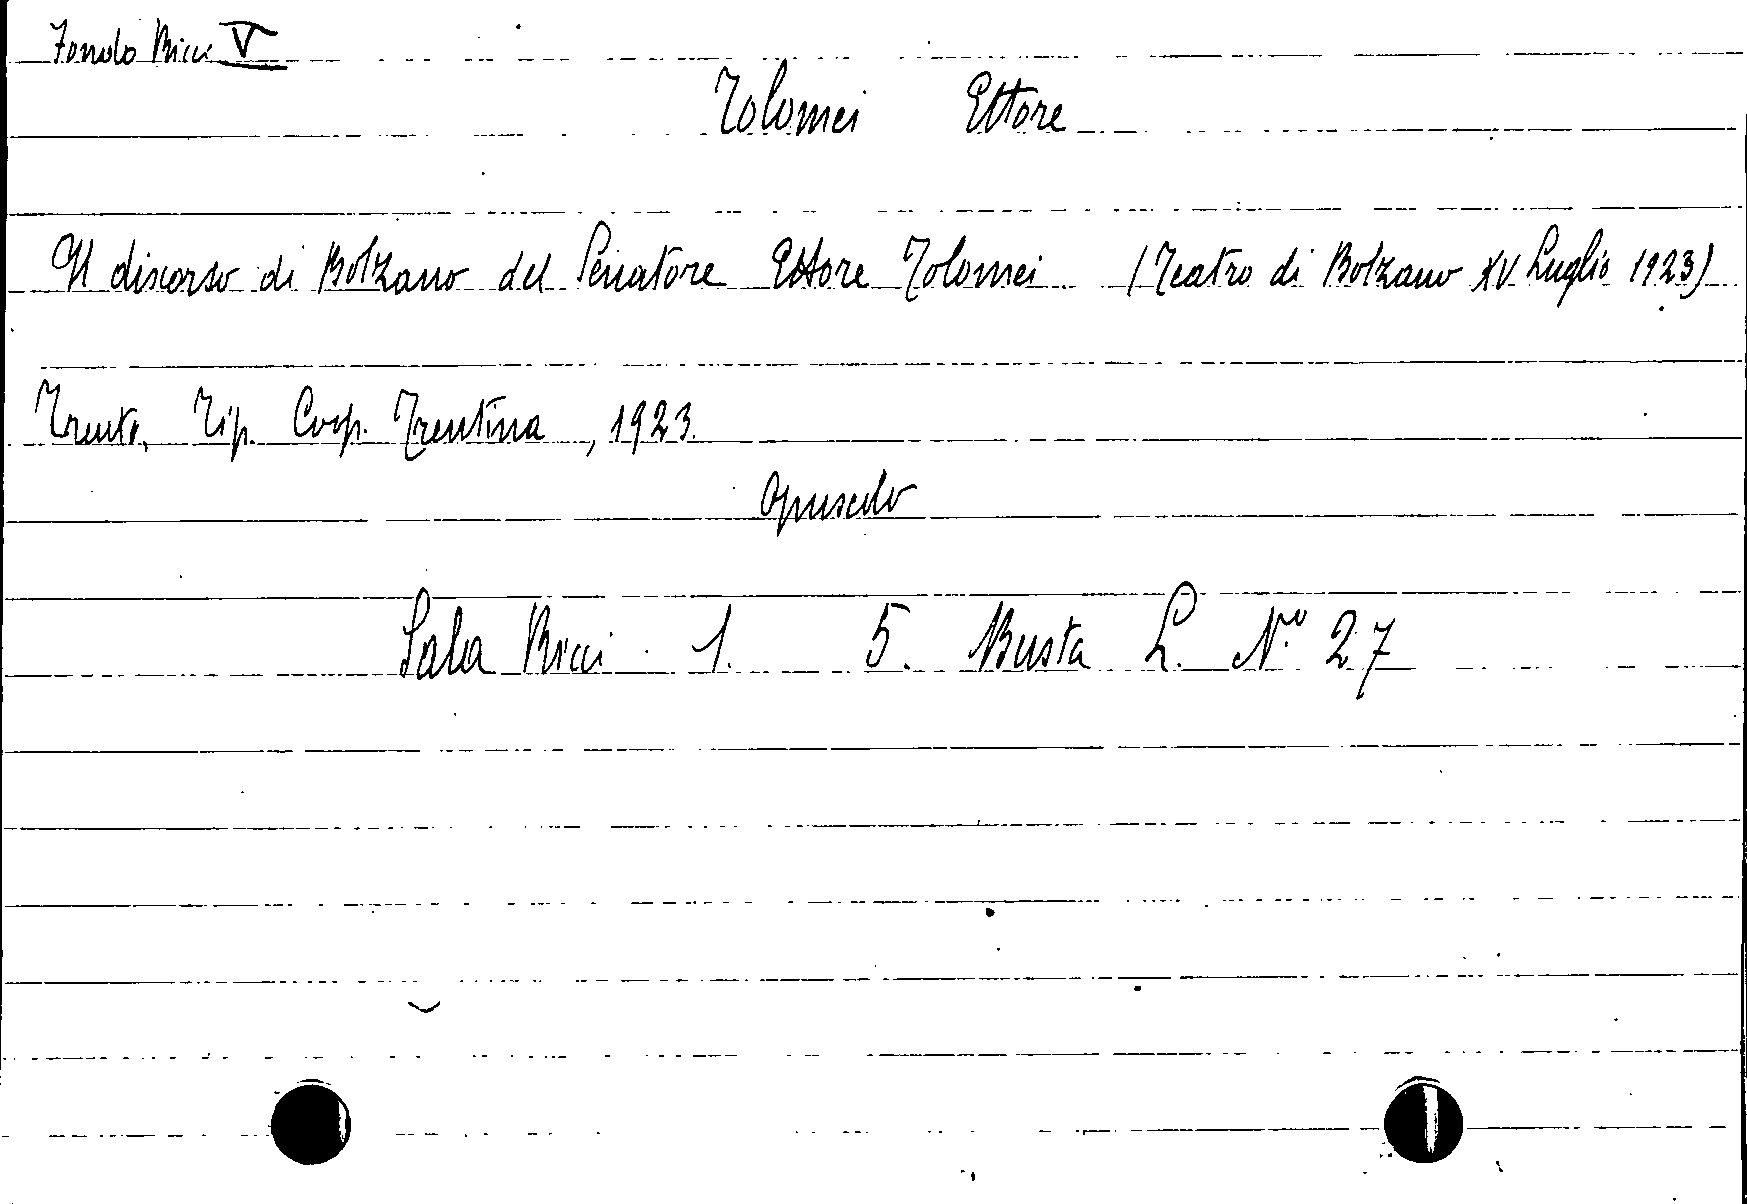 Fondo Ricci V
Tolomei Ettore
Il discorso di Bolzano del Senatore Ettore Tolomei (Teatro di Bolzano XV Luglio 1923)
Trento, Tip. Coop. Trentina, 1923.
Opuscolo
Sala Ricci. 1. 5. Busta L. N.o 27